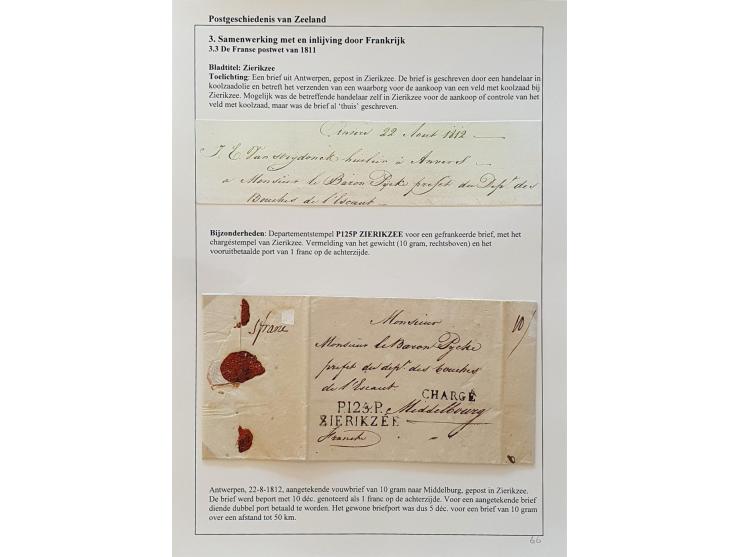 Postgeschiedenis van Zeeland
3. Samenwerking met en inlijving door Frankrijk
3.3 De Franse postwet van 1811
Bladtitel: Zierikzee
Toelichting: Een brief uit Antwerpen, gepost in Zierikzee. De brief is geschreven door een handelaar in
koolzaadolie en betreft het verzenden van een waarborg voor de aankoop van een veld met koolzaad bij
Zierikzee. Mogelijk was de betreffende handelaar zelf in Zierikzee voor de aankoop of controle van het
veld met koolzaad, maar was de brief al 'thuis' geschreven.
22 Aout 1812
J. E. huilier à Anvers
a Monsieur le Baron Pycke prefet du Dept. des
Bouches de l'Escaut
Bijzonderheden: Departementstempel P125P ZIERIKZEE voor een gefrankeerde brief, met het
chargéstempel van Zierikzee. Vermelding van het gewicht (10 gram, rechtsboven) en het
vooruitbetaalde port van 1 franc op de achterzijde.
1 franc
10
Monsieur
Monsieur le Baron Pycke
prefet du dept. des bouches
de l'Escaut
CHARGÉ
P125P. Middelbourg
ZIERIKZÉE
Franche
Antwerpen, 22-8-1812, aangetekende vouwbrief van 10 gram naar Middelburg, gepost in Zierikzee.
De brief werd beport met 10 déc. genoteerd als 1 franc op de achterzijde. Voor een aangetekende brief
diende dubbel port betaald te worden. Het gewone briefport was dus 5 déc. voor een brief van 10 gram
over een afstand tot 50 km.
66